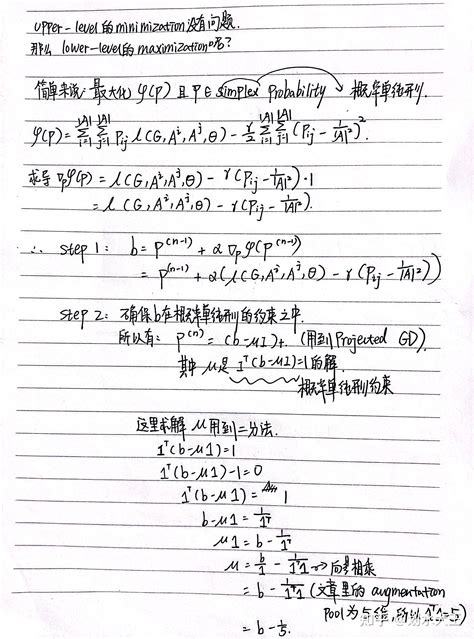 upper-level的minimization没有问题.
那么 lower-level的maximization呢?
简单来说: 最大化 φ(p) 且 P∈simplex Probability 概率单纯形.
φ(p) = Σ_{i=1}^{|A|} Σ_{j=1}^{|A|} P_{ij} ℓ(G, A^i, A^j, θ) - γ/2 Σ_{i=1}^{|A|} Σ_{j=1}^{|A|} (P_{ij} - 1/|A|²)².
求导 ∇_pφ(p) = ℓ(G, A^i, A^j, θ) - γ(P_{ij} - 1/|A|²)·1
= ℓ(G, A^i, A^j, θ) - γ(P_{ij} - 1/|A|²).
∴ step 1: b = p^{(n-1)} + α∇_pφ(p^{(n-1)})
= p^{(n-1)} + α(ℓ(G, A^i, A^j, θ) - γ(P_{ij} - 1/|A|²))
step 2: 确保b在概率单纯形的约束之中.
所以有: P^{(n)} = (b-μ1)+. (用到Projected GD).
其中 μ是 1^T(b-μ1)=1 的解.
概率单纯形约束
这里求解 μ用到二分法.
1^T(b-μ1)=1
1^T(b-μ1)-1=0
1^T(b-μ1)= 1
b-μ1 = 1/1^T
μ1 = b - 1/1^T
μ = b/1 - 1/1^T1 → 向量相乘
= b - 1/1^T1 (文章里的 augmentation
Pool为5维, 所以 1^T1=5)
= b - 1/5.
知乎